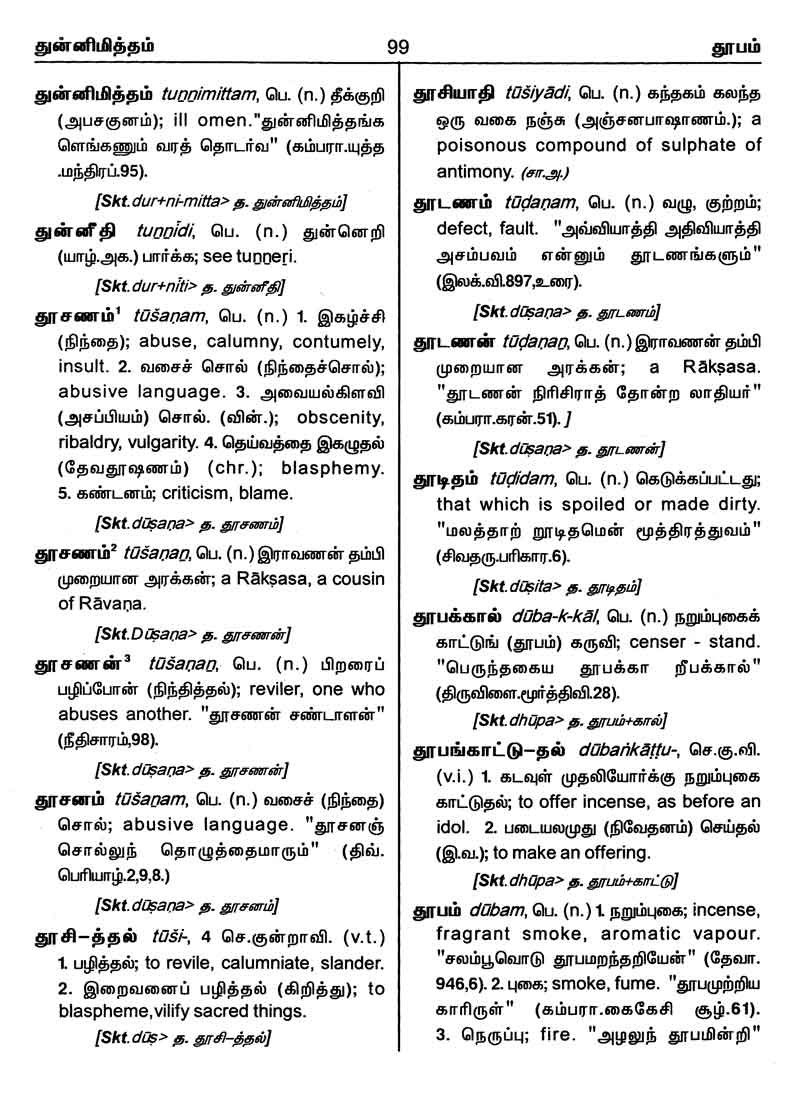 துன்னிமித்தம் 99 தூபம்
துன்னிமித்தம் tuṉṉimittam, பெ. (n.) தீக்குறி
(அபசகுனம்); ill omen."துன்னிமித்தங்க
ளெங்கணும் வரத் தொடர்வ" (கம்பரா.யுத்த
.மந்திரப்.95).
[Skt. dur+ni-mitta> த. துன்னிமித்தம்]
துன்னீதி tuṉṉīdi, பெ. (n.) துன்னெறி
(யாழ்.அக.) பார்க்க; see tuṉṉeṟi.
[Skt. dur+nīti> த. துன்னீதி]
தூசணம்¹ tūšaṇam, பெ. (n.) 1. இகழ்ச்சி
(நிந்தை); abuse, calumny, contumely,
insult. 2. வசைச் சொல் (நிந்தைச்சொல்);
abusive language. 3. அவையல்கிளவி
(அசப்பியம்) சொல். (வின்.); obscenity,
ribaldry, vulgarity. 4. தெய்வத்தை இகழுதல்
(தேவதூஷணம்) (chr.); blasphemy.
5. கண்டனம்; criticism, blame.
[Skt. dūṣaṇa> த. தூசணம்]
தூசணம்² tūšaṇaṉ, பெ. (n.) இராவணன் தம்பி
முறையான அரக்கன்; a Rākṣasa, a cousin
of Rāvaṇa.
[Skt.Dūṣaṇa> த. தூசணன்]
தூசணன்³ tūšaṇaṉ, பெ. (n.) பிறரைப்
பழிப்போன் (நிந்தித்தல்); reviler, one who
abuses another. "தூசணன் சண்டாளன்"
(நீதிசாரம்,98).
[Skt. dūṣaṇa> த. தூசணன்]
தூசனம் tūšaṉam, பெ. (n.) வசைச் (நிந்தை)
சொல்; abusive language. "தூசனஞ்
சொல்லுந் தொழுத்தைமாரும்" (திவ்.
பெரியாழ்.2,9,8.)
[Skt. dūṣaṇa> த. தூசனம்]
தூசி–த்தல் tūši-, 4 செ.குன்றாவி. (v.t.)
1. பழித்தல்; to revile, calumniate, slander.
2. இறைவனைப் பழித்தல் (கிறித்து); to
blaspheme,vilify sacred things.
[Skt. dūṣ> த. தூசி–த்தல்]
தூசியாதி tūšiyādi, பெ. (n.) கந்தகம் கலந்த
ஒரு வகை நஞ்சு (அஞ்சனபாஷாணம்.); a
poisonous compound of sulphate of
antimony. (சா.அ.)
தூடணம் tūḍaṇam, பெ. (n.) வழு, குற்றம்;
defect, fault. "அவ்வியாத்தி அதிவியாத்தி
அசம்பவம் என்னும் தூடணங்களும்"
(இலக்.வி.897,உரை).
[Skt. dūṣaṇa> த. தூடணம்]
தூடணன் tūḍaṇaṉ, பெ. (n.) இராவணன் தம்பி
முறையான அரக்கன்; a Rākṣasa.
"தூடணன் நிரிசிராத் தோன்ற லாதியர்"
(கம்பரா.கரன்.51). ]
[Skt. dūṣaṇa> த. தூடணன்]
தூடிதம் tūḍidam, பெ. (n.) கெடுக்கப்பட்டது;
that which is spoiled or made dirty.
"மலத்தாற் றூடிதமென் மூத்திரத்துவம்"
(சிவதரு.பரிகார.6).
[Skt. dūṣita> த. தூடிதம்]
தூபக்கால் dūba-k-kāl, பெ. (n.) நறும்புகைக்
காட்டுங் (தூபம்) கருவி; censer - stand.
"பெருந்தகைய தூபக்கா றீபக்கால்"
(திருவிளை.மூர்த்திவி.28).
[Skt. dhūpa> த. தூபம்+கால்]
தூபங்காட்டு–தல் dūbaṅkāṭṭu-, செ.கு.வி.
(v.i.) 1. கடவுள் முதலியோர்க்கு நறும்புகை
காட்டுதல்; to offer incense, as before an
idol. 2. படையலமுது (நிவேதனம்) செய்தல்
(இ.வ.); to make an offering.
[Skt. dhūpa> த. தூபம்+காட்டு]
தூபம் dūbam, பெ. (n.) 1. நறும்புகை; incense,
fragrant smoke, aromatic vapour.
"சலம்பூவொடு தூபமறந்தறியேன்" (தேவா.
946,6). 2. புகை; smoke, fume. "தூபமுற்றிய
காரிருள்" (கம்பரா.கைகேசி சூழ்.61).
3. நெருப்பு; fire. "அழலுந் தூபமின்றி"